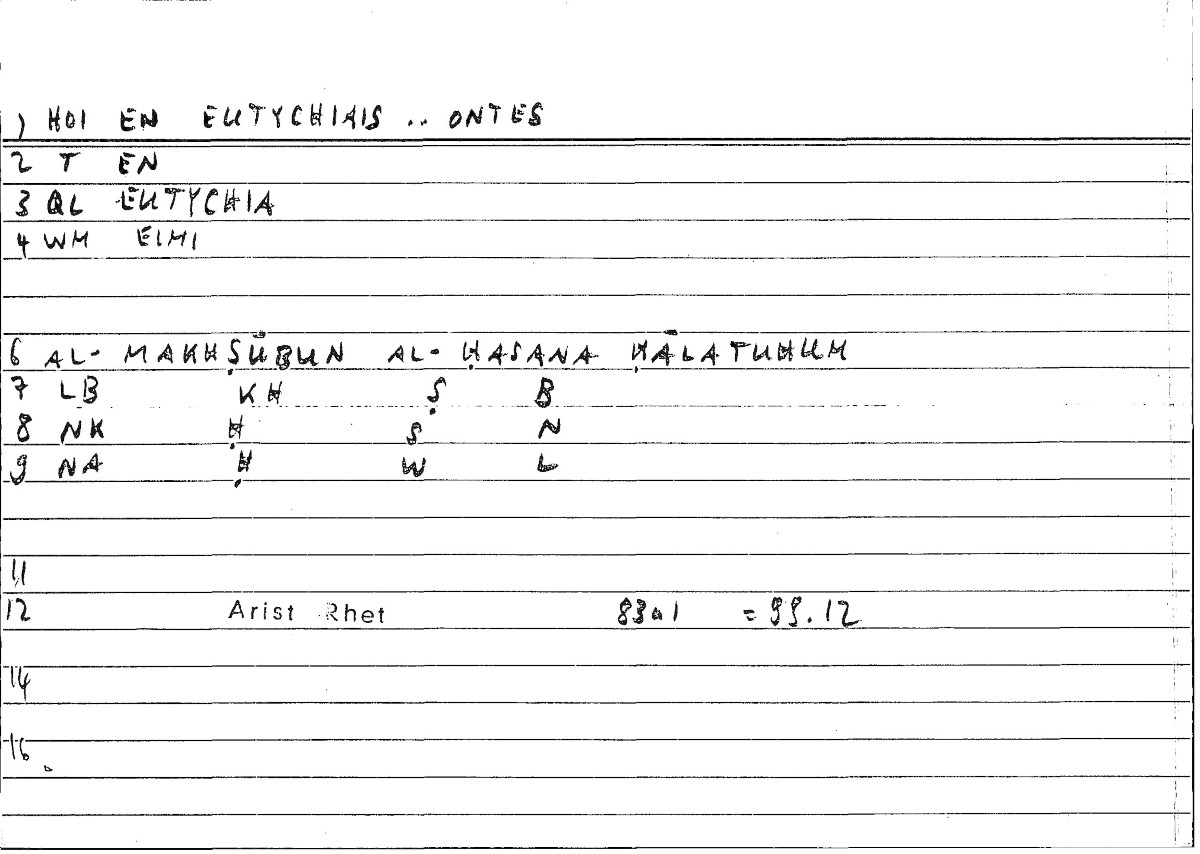 1) HOI EN EUTYCHIAIS .. ONTES
2 T EN
3 QL EUTYCHIA
4 WM EIMI
6 AL- MAKHṢŪBUN AL- ḤASANA ḤĀLATUHUM
7 LB KH Ṣ B
8 NK Ḥ S N
9 NA Ḥ W L
11
12 Arist Rhet 83a1 = 99.12
14
16